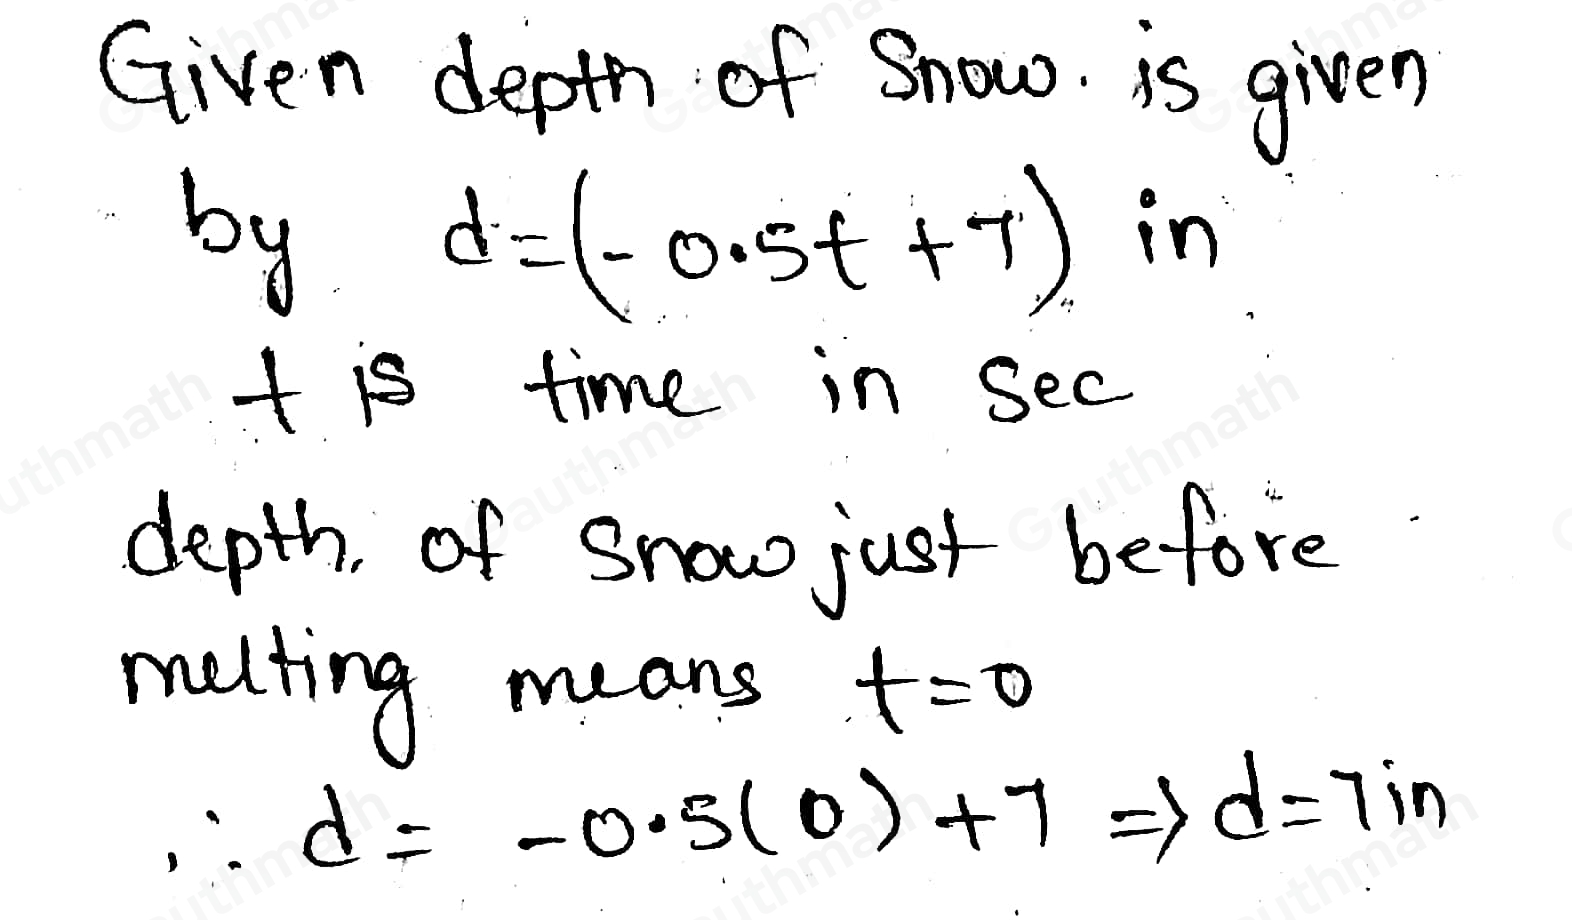 Given depth of Snow. is given
by d=(-0.5t+7) in
t is time in Sec
depth. of Snow just before
melting means t=0
∴ d = -0.5(0)+7 => d=7in